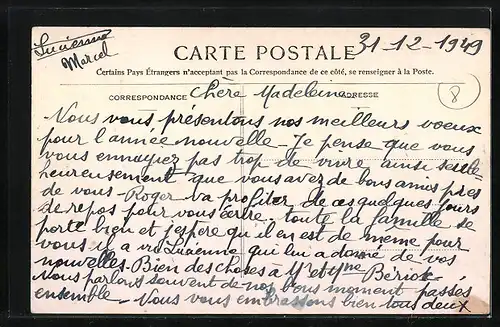 Lucienne
Marcel
31-12-1949
CARTE POSTALE
Certains Pays Étrangers n'acceptant pas la Correspondance de ce côté, se renseigner à la Poste.
CORRESPONDANCE
ADRESSE
8
Chère Madeleine
Nous vous présentons nos meilleurs voeux
pour l'année nouvelle - Je pense que vous
vous ennuyez pas trop de vivre ainsi seule
heureusement que vous avez de bons amis près
de vous - Roger va profiter de ces quelques jours
de repos pour vous écrire. toute la famille se
porte bien et j'espère qu'il en est de même pour
vous il a vu Lucienne qui lui a donné de vos
nouvelles. Bien des choses à Mr et Mme
Nous parlons souvent de nos bons moment passés
ensemble - Nous vous embrassons bien tous deux